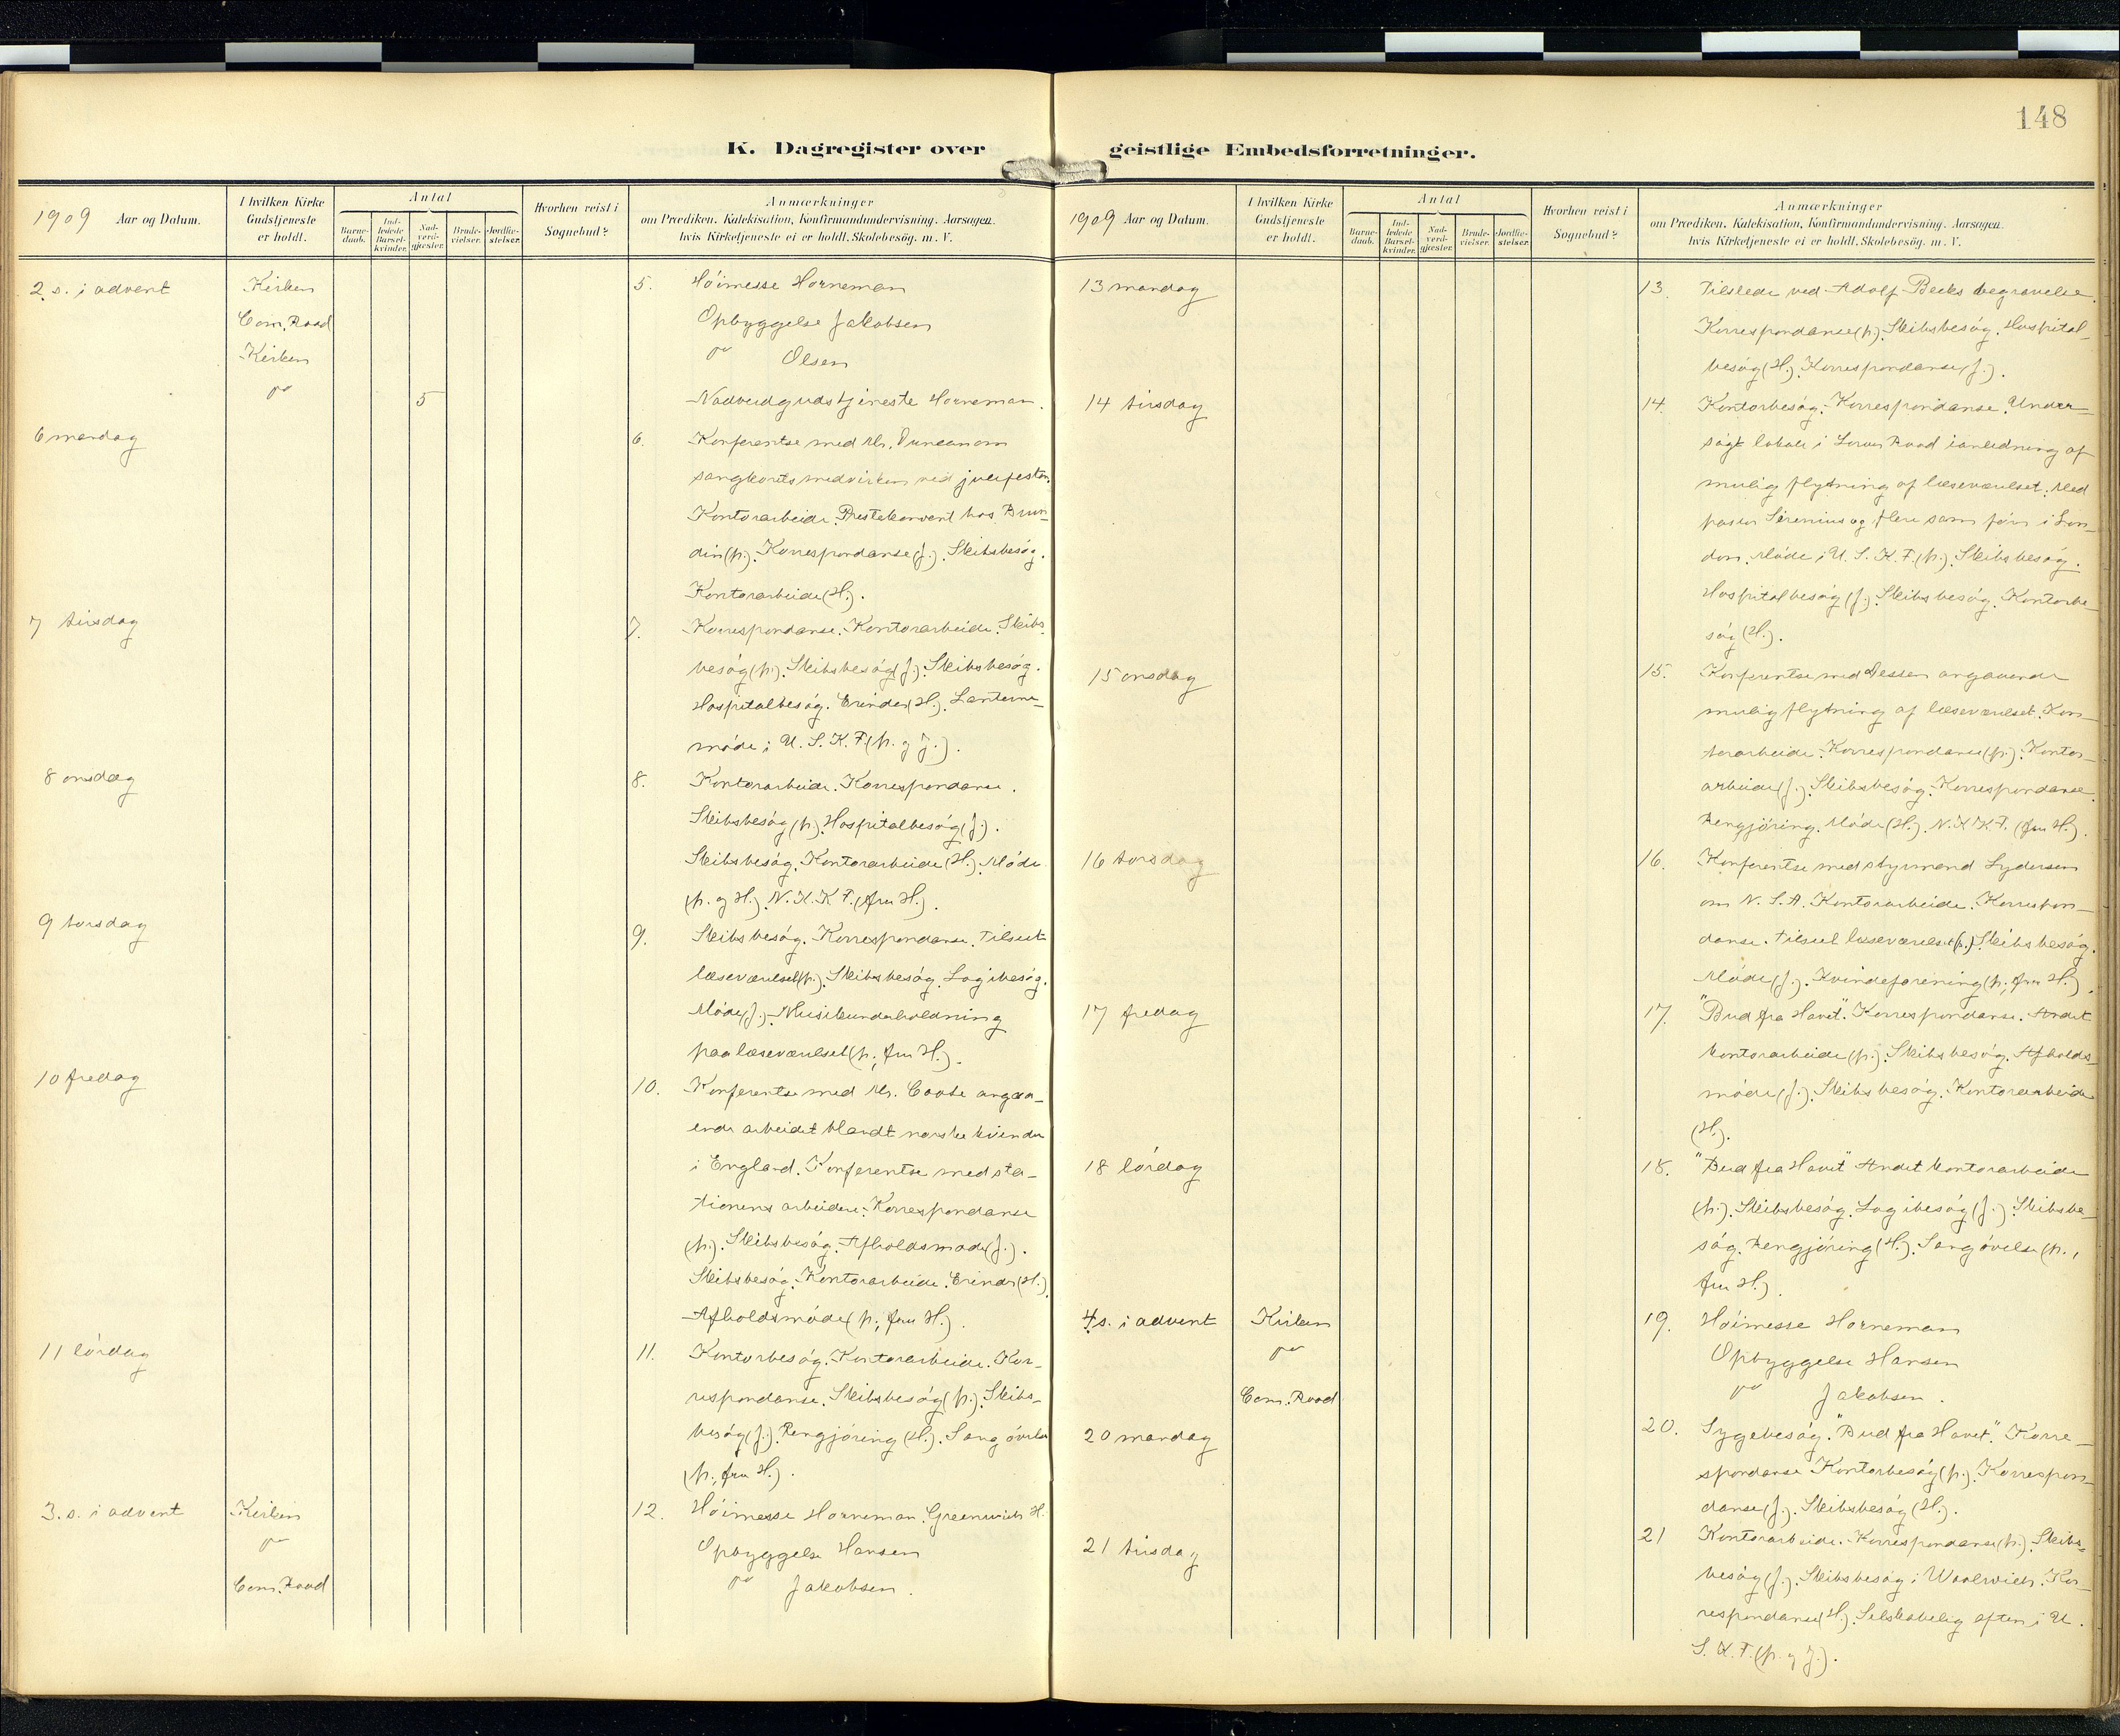 148
K. Dagregister over
1909 Aar og Datum.
I hvilken Kirke Gudstjeneste er holdt.
Antal
Barne-daab.
Ind-ledede Barsel-kvinder.
Nad-verd-gjæster.
Brude-vielser.
Jordfæ-stelser.
Hvorhen reist i Sognebud?
Anmærkninger
om Prædiken, Katekisation, Konfirmandundervisning, Aarsagen,
hvis Kirketjeneste ei er holdt, Skolebesög, m. V.
2. s. i advent Kirken 5. Höimesse Horneman
Com. Road Opbyggelse Jakobsen
Kirken " Olsen
" 5 Nadverdgudstjeneste Horneman.
6 mandag 6. Konferentse med Mr. Duncan om
sangkorets medvirken ved julefesten.
Kontorarbeide. Prestekonvent hos Brun-
din (p.). Korrespondanse (J.). Skibsbesög.
Kontorarbeide (H.).
7 tirsdag 7. Korrespondanse. Kontorarbeide. Skibs-
besög (p.). Skibsbesög (J.). Skibsbesög.
Hospitalbesög. Erinder (H.). Lanterne-
möde i U. S. K. F. (p. og J.).
8 onsdag 8. Kontorarbeide. Korrespondanse.
Skibsbesög (p.). Hospitalbesög (J.).
Skibsbesög. Kontorarbeide (H.). Möde
(p. og H.). N. K. K. F. (fru H.).
9 torsdag 9. Skibsbesög. Korrespondanse. Tilseet
læseværelset (p.). Skibsbesög. Logibesög.
Möde (J.). Musikunderholdning
paa læseværelset (p., fru H.).
10 fredag 10. Konferentse med Mr. Coote angaa-
ende arbeidet blandt norske kvinder
i England. Konferentse med sta-
tionens arbeidere. Korrespondanse
(p.). Skibsbesög. Afholdsmöde (J.).
Skibsbesög. Kontorarbeide. Erinder (H.).
Afholdsmöde (p., fru H.).
11 lördag 11. Kontorbesög. Kontorarbeide. Kor-
respondanse. Skibsbesög (p.). Skibs-
besög (J.). Rengjöring (H.). Sangövelse
(p., fru H.).
3. s. i advent Kirken 12. Höimesse Horneman. Greenwich H.
" Opbyggelse Hansen
Com. Road " Jakobsen.
geistlige Embedsforretninger.
1909 Aar og Datum.
I hvilken Kirke Gudstjeneste er holdt.
Antal
Barne-daab.
Ind-ledede Barsel-kvinder.
Nad-verd-gjæster.
Brude-vielser.
Jordfæ-stelser.
Hvorhen reist i Sognebud?
Anmærkninger
om Prædiken, Katekisation, Konfirmandundervisning, Aarsagen,
hvis Kirketjeneste ei er holdt, Skolebesög, m. V.
13 mandag 13. Tilstede ved Adolf Becks begravelse.
Korrespondanse (p.). Skibsbesög. Hospital-
besög (H.). Korrespondanse (J.).
14 tirsdag 14. Kontorbesög. Korrespondanse. Under-
sögt lokale i Lower Road i anledning af
mulig flytning af læseværelset. Med
pastor Sirenius og flere som före i Lon-
don. Möde i U. S. K. F. (p.). Skibsbesög.
Hospitalbesög (J.). Skibsbesög. Kontorbe-
sög (H.).
15 onsdag 15. Konferentse med Dessen angaaende
mulig flytning af læseværelset. Kon-
torarbeide. Korrespondanse (p.). Kontor-
arbeide (J.). Skibsbesög. Korrespondanse.
Rengjöring. Möde (H.). N. K. K. F. (fru H.).
16 torsdag 16. Konferentse med styrmand Lydersen
om N. S. A. Kontorarbeide. Korrespon-
danse. Tilseet læseværelset (p.). Skibsbesög.
Möde (J.). Kvindeforening (p., fru H.).
17 fredag 17. "Bud fra Havet". Korrespondanse. Andet
kontorarbeide (p.). Skibsbesög. Afholds-
möde (J.). Skibsbesög. Kontorarbeide
(H.).
18 lördag 18. "Bud fra Havet" Andet kontorarbeide
(p.). Skibsbesög. Logibesög (J.). Skibsbe-
sög. Rengjöring (H.). Sangövelse (p.,
fru H.).
4. s. i advent Kirken 19. Höimesse Horneman
" Opbyggelse Hansen
Com. Road " Jakobsen.
20 mandag 20. Sygebesög. "Bud fra Havet". Korre-
spondanse Kontorbesög (p.). Korrespon-
danse (J.). Skibsbesög (H.).
21 tirsdag 21 Kontorarbeide. Korrespondanse (p.). Skibs-
besög (J.). Skibsbesög i Woolwich. Kor-
respondanse (H.). Selskabelig aften i U.
S. K. F. (p. og J.).